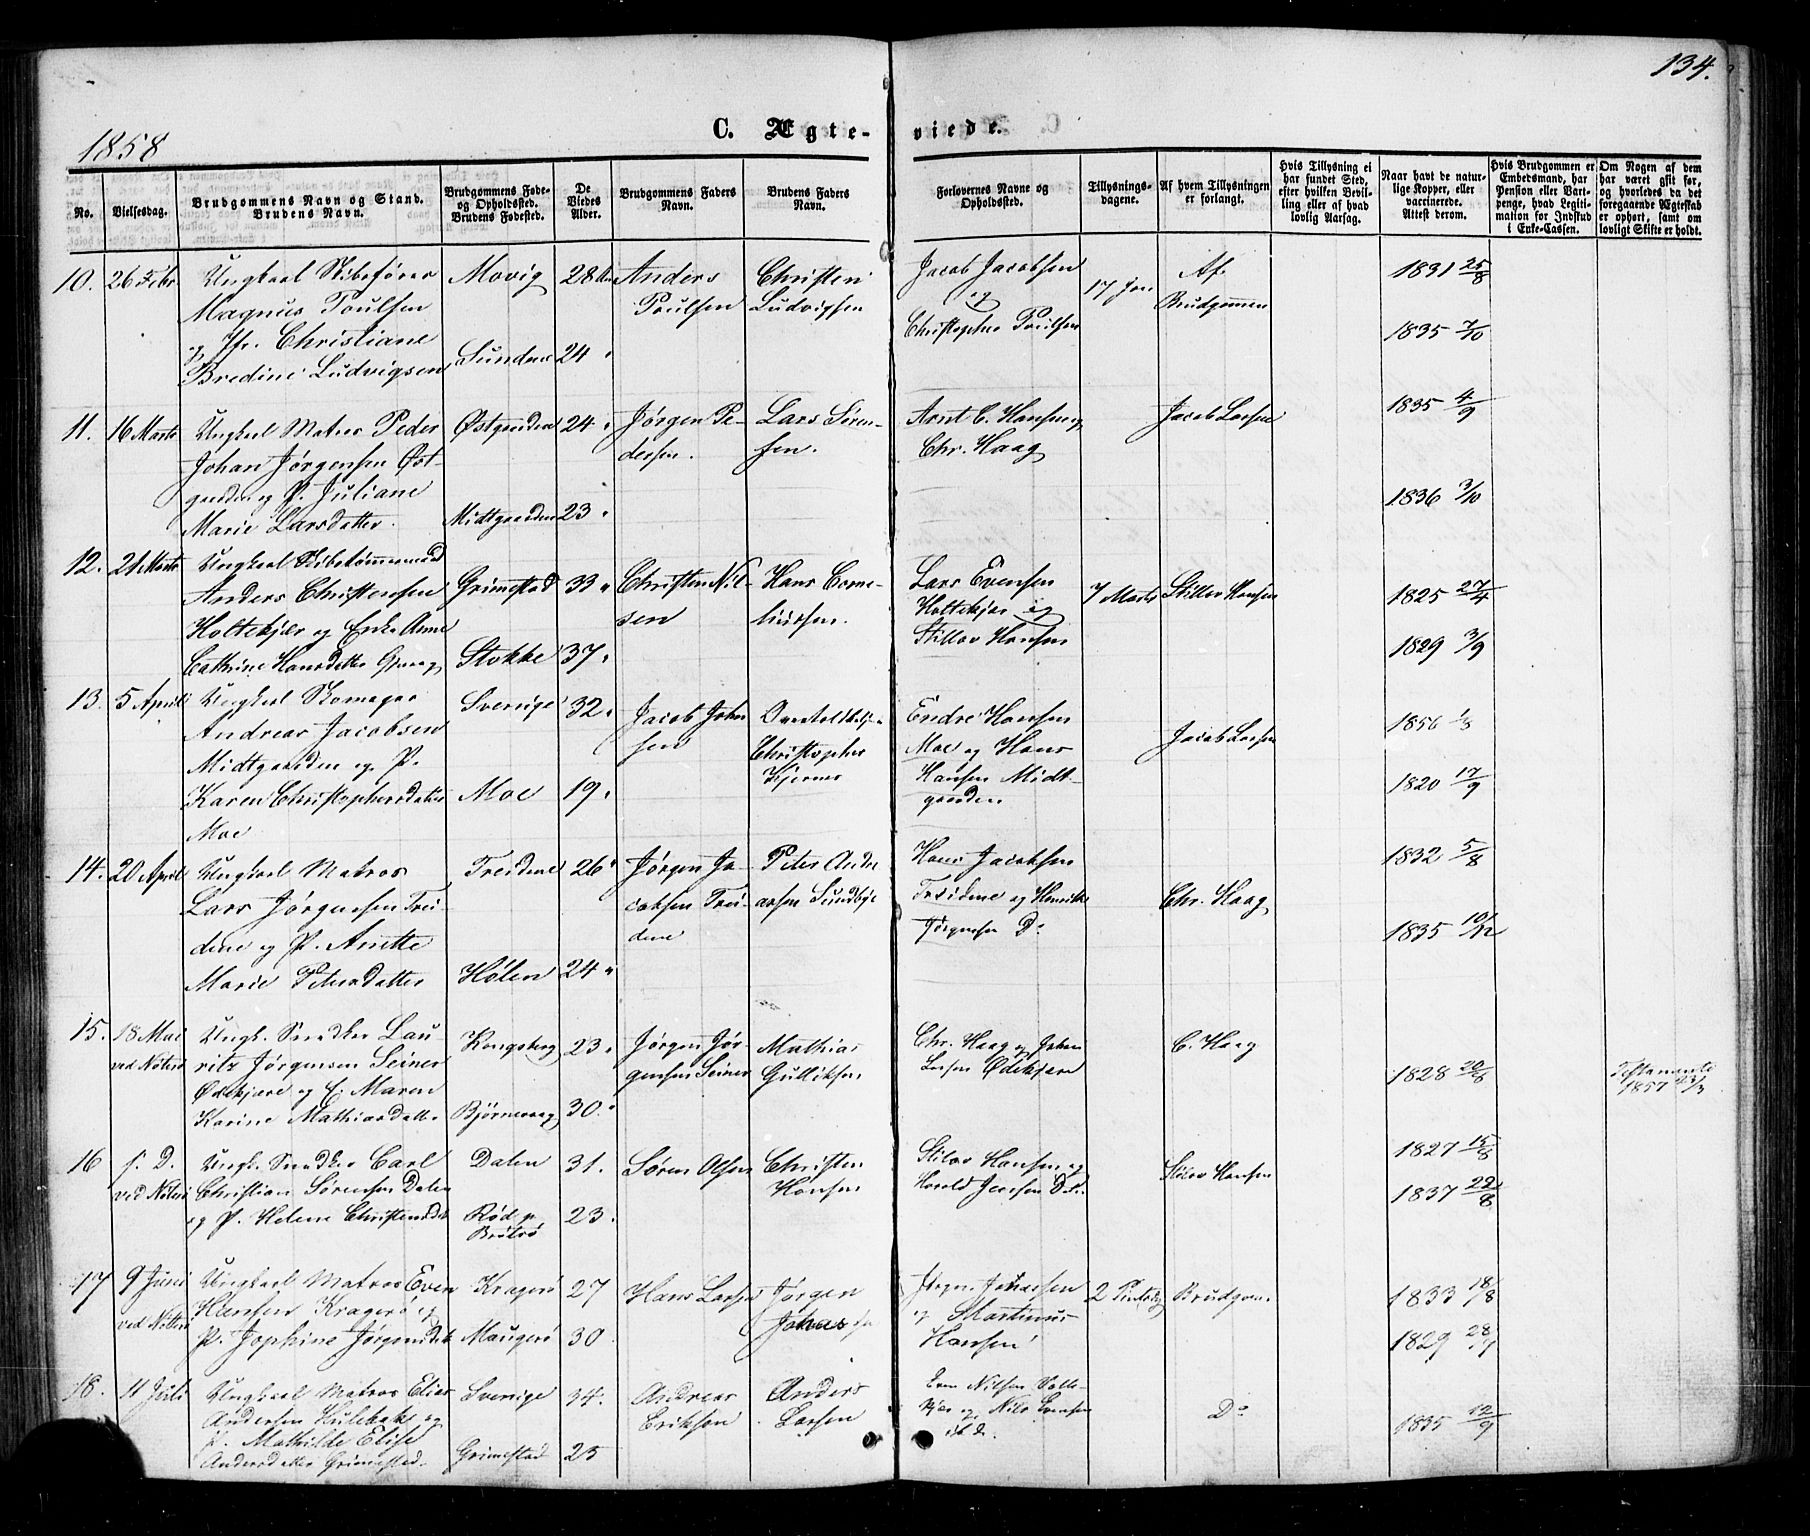 134.
1858
C. Ægte-
viede.
No.
Vielsesdag.
Brudgommens Navn og Stand.
Brudens Navn.
Brudgommens Føde-
og Opholdssted.
Brudens Fødested.
De
Viedes
Alder.
Brudgommens Faders
Navn.
Brudens Faders
Navn.
Forlovernes Navne og
Opholdssted.
Tillysnings-
dagene.
Af hvem Tillysningen
er forlangt.
Hvis Tillysning ei
har fundet Sted,
efter hvilken Bevil-
ling eller af hvad
lovlig Aarsag.
Naar havt de natur-
lige Kopper, eller
vaccinerede.
Attest derom.
Hvis Brudgommen er
Embedsmand, har
Pension eller Vart-
penge, hvad Legiti-
mation for Indskud
i Enke-Cassen.
Om Nogen af dem
har været gift før,
og hvorledes da det
foregaaende Ægteskab
er ophørt, samt om
lovligt Skifte er holdt.
10. 26 Febr
Ungkarl Skibsfører
Magnus Poulsen
og Jfr. Christiane
Bredine Ludvigsen
Movig
Sundene
28
24
Anders
Poulsen
Christen
Ludvigsen
Jacob Jacobsen
og
Christopher Poulsen
17 Jan
Af
Brudgommen
1831 25/8
1835 7/10
11. 16 Marts
Ungkarl Matros Peder
Johan Jørgensen Øst-
gaarden og P. Juliane
Marie Larsdatter.
Østgaarden
Midtgaarden
24
23
Jørgen Pe-
dersen.
Lars Søren-
sen.
Arnt C. Hansen og
Chr. Haag
Jacob Larsen
1835 4/9
1836 3/10
12. 21 Marts
Ungkarl Skibstømmermand
Anders Christensen
Holtekjær og Enke Anne
Cathrine Hansdatter
Grimestad
Stokke
33
37
Christen Nil-
sen
Hans Corne-
liussen.
Lars Evensen
Holtekjær og
Stillov Hansen
7 Marts
Stillov Hansen
1825 27/4
1829 3/9
13. 5 April
Ungkarl Skomager
Andreas Jacobsen
Midtgaarden og P.
Karen Christophersdatter
Moe
Sverige
Moe
32
19
Jacob Johan
sen
Christopher
Kjernes
Endre Hansen
Moe og Hans
Hansen Midt-
gaarden.
Jacob Larsen
1856 1/8
1820 17/9
14. 20 April
Ungkarl Matros
Lars Jørgensen Trei-
dene og P. Anette
Marie Petersdatter
Treidene
Hølen
26
24
Jørgen Ja-
cobsen Trei-
dene
Peter Andre
asen Sundbye
Hans Jacobsen
Treidene og Henrik
Jørgensen Do
Chr. Haag
1832 5/8
1835 10/12
15. 18 Mai
ved Nøterø
Ungk. Snedker Lau-
ritz Jørgensen Seiner
Ødekjære og E. Maren
Karine Mathiasdatter
Kongsberg
Bjørnevaag
23
30
Jørgen Jør-
gensen Seiner
Mathias
Gulliksen
Chr. Haag og Johan
Larsen Ødekjære
C. Haag
1828 20/8
Testamente
1857 23/3
16 s. D.
ved Nøterø
Ungk. Snedker Carl
Christian Sørensen Dalen
og P. Helene Christensdat
Dalen
Rød p.
Brøtsø
31.
23.
Søren Olsen
Christen
Hansen
Stilov Hansen og
Harald Jensen
Stilov Hansen
1827 15/8
1837 22/8
17 9 Juni
ved Nøterø
Ungkarl Matros Even
Hansen Kragerø og
P. Josphine Jørgensdat
Kragerø
Maugerø
27
30
Hans Larsen
Jørgen
Johansen
Jørgen Johansen
og Martinus
Hansen
2 Pintsdag
Brudgom.
1833 18/8
1829
18. 11 Juli
Ungkarl Matros Elias
Andersen Hulebak og
P. Mathilde Elise
Andersdatter Grimestad.
Sverige
Grimestad
34.
25
Andreas
Eriksen
Anders
Larsen
Even Nilsen Holte-
kjær og Nils Svensen
Do
1835 12/9